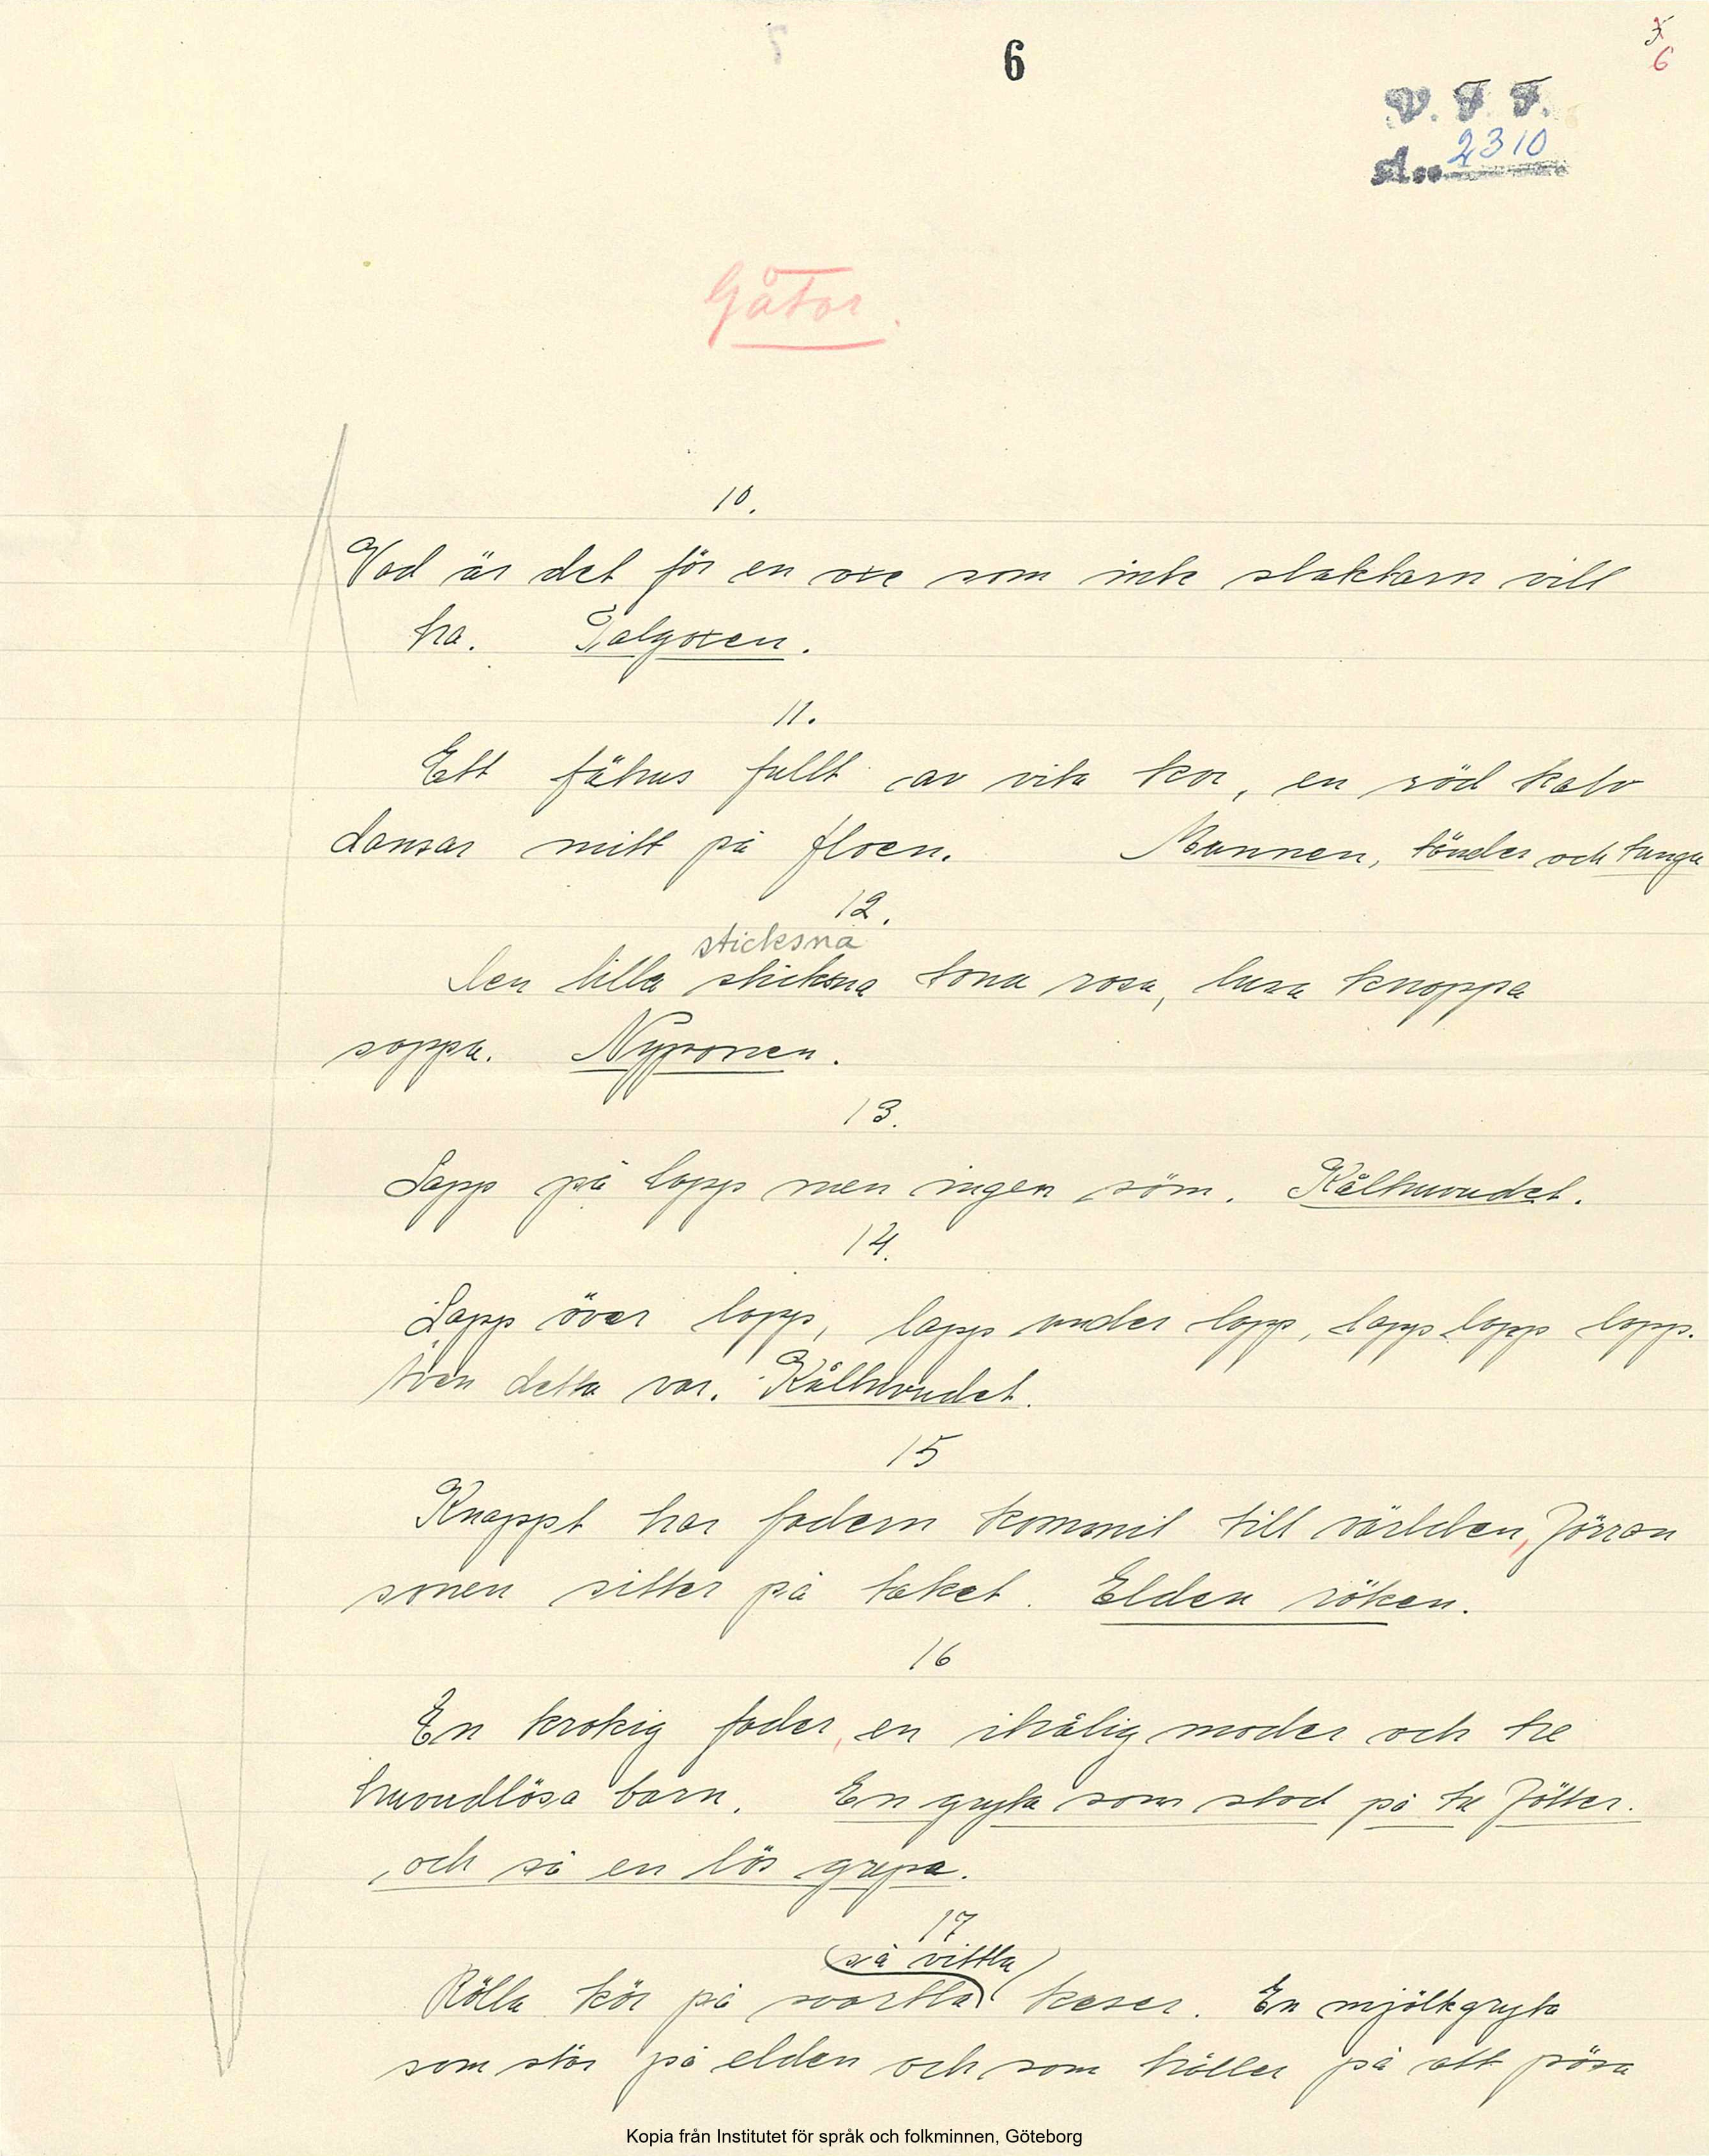 6
5
6
V. F. F.
Acc. 2310
Gåtor.
10.
Vad är det för en oxe som inte slaktarn vill
ha. Talgoxen.
11.
Ett fähus fullt av vita kor, en röd kalv
dansar mitt på floen. Munnen, tänder och tunga
12.
sticksna
Den lilla sticksna tona rosa, lura knoppa
soppa. Nyponen.
13.
Lapp på lapp men ingen söm. Kålhuvudet.
14.
Lapp över lapp, lapp under lapp, lapp lapp lapp.
Även detta var. Kålhuvudet.
15
Knappt har fadern kommit till världen, förran
sonen sitter på taket. Elden röken.
16
En krokig fader, en ihålig moder och tre
huvudlösa barn. En gryta som stod på tre fötter.
och så en lös grepa.
17
så vittla
Rölla kör på svartla kaser. En mjölkgryta
som står på elden och som håller på att pösa
Kopia från Institutet för språk och folkminnen, Göteborg